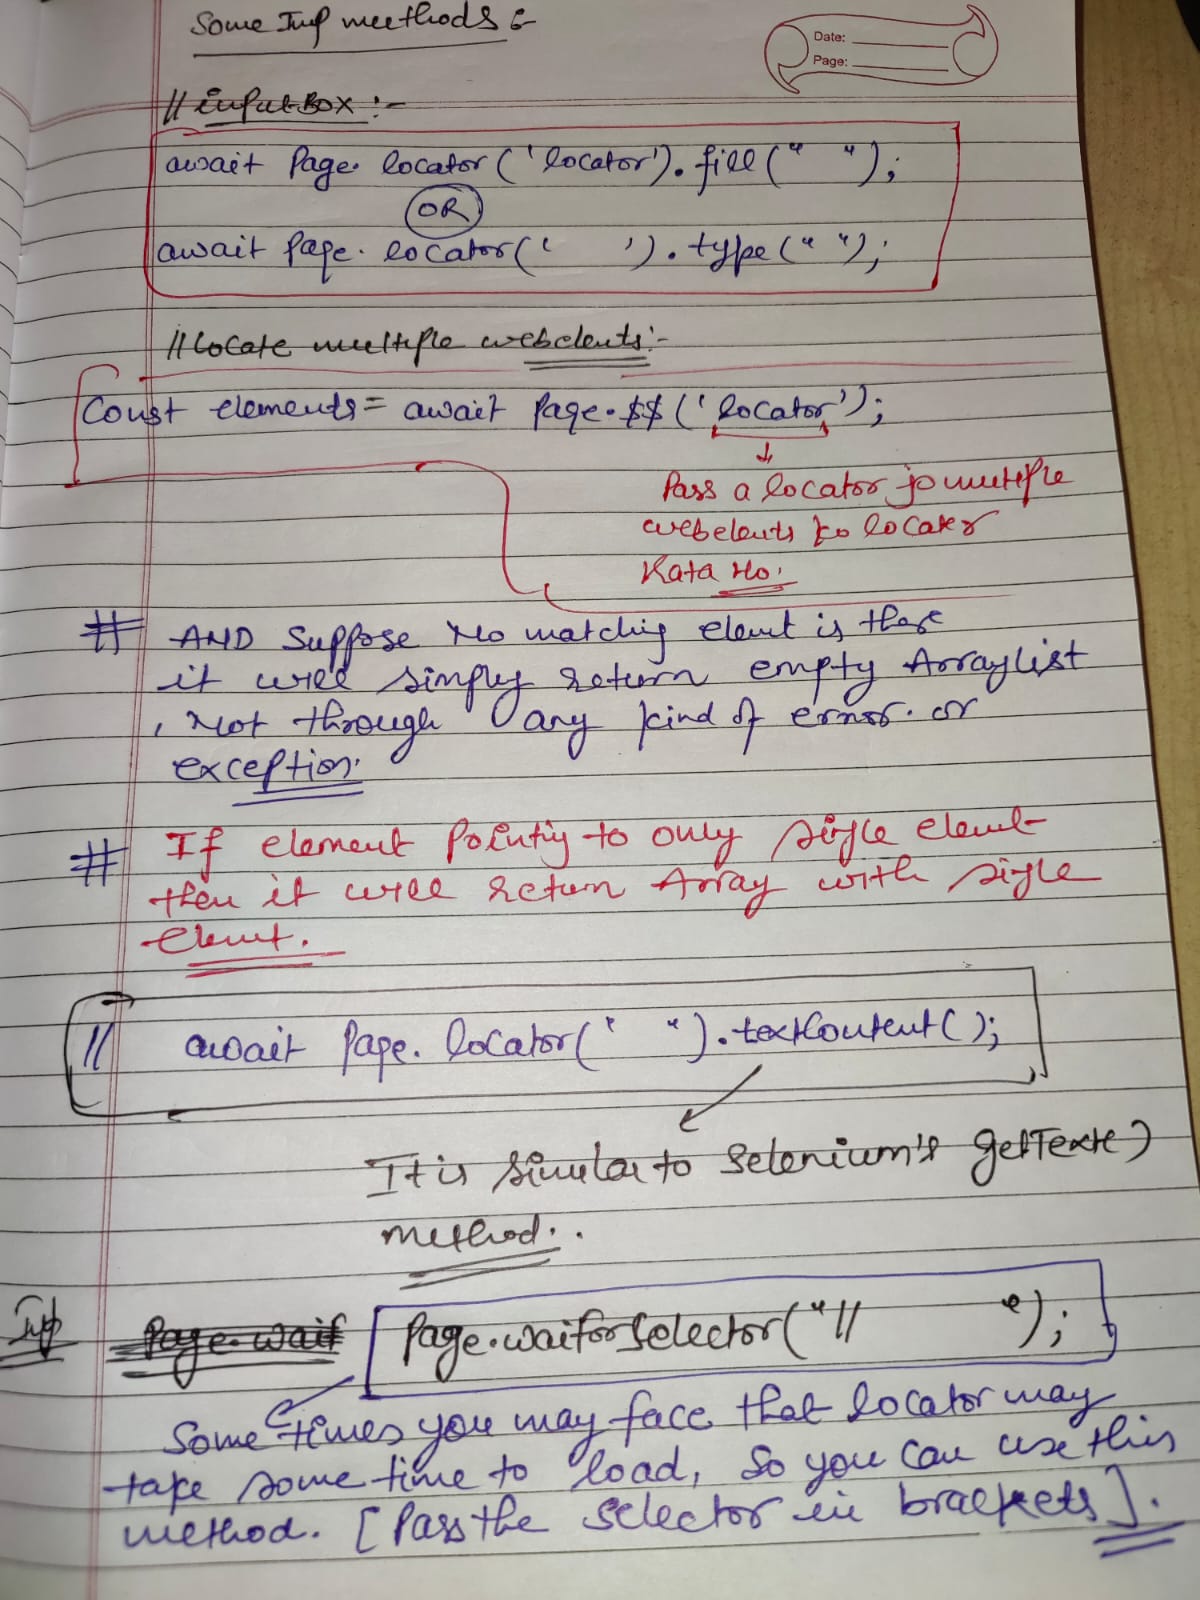 Some Imp meethods :-
Date:
Page:
// inputBox :-
await Page. locator ('locator'). fill (" ");
OR
await page. locator(' '). type (" ");
// Locate multiple webelents:-
Const elements = await Page.$$ ('locator');
Pass a locator jo multiple
webelents ko locate
Karta Ho.
# AND Suppose No matching elemt is there
it will simply return empty Arraylist
, Not through any kind of error. or
exception.
# If element Pointig to only single elemt
then it will return Array with sigle
Elemt.
// await Page. locator(" "). textContent();
It is similar to Selenium's getText()
method..
Imp Page.wait Page.waitforSelector("// ");
Some times you may face that locator may
take some time to load, So you can use this
method. [Pass the selector in brackets].